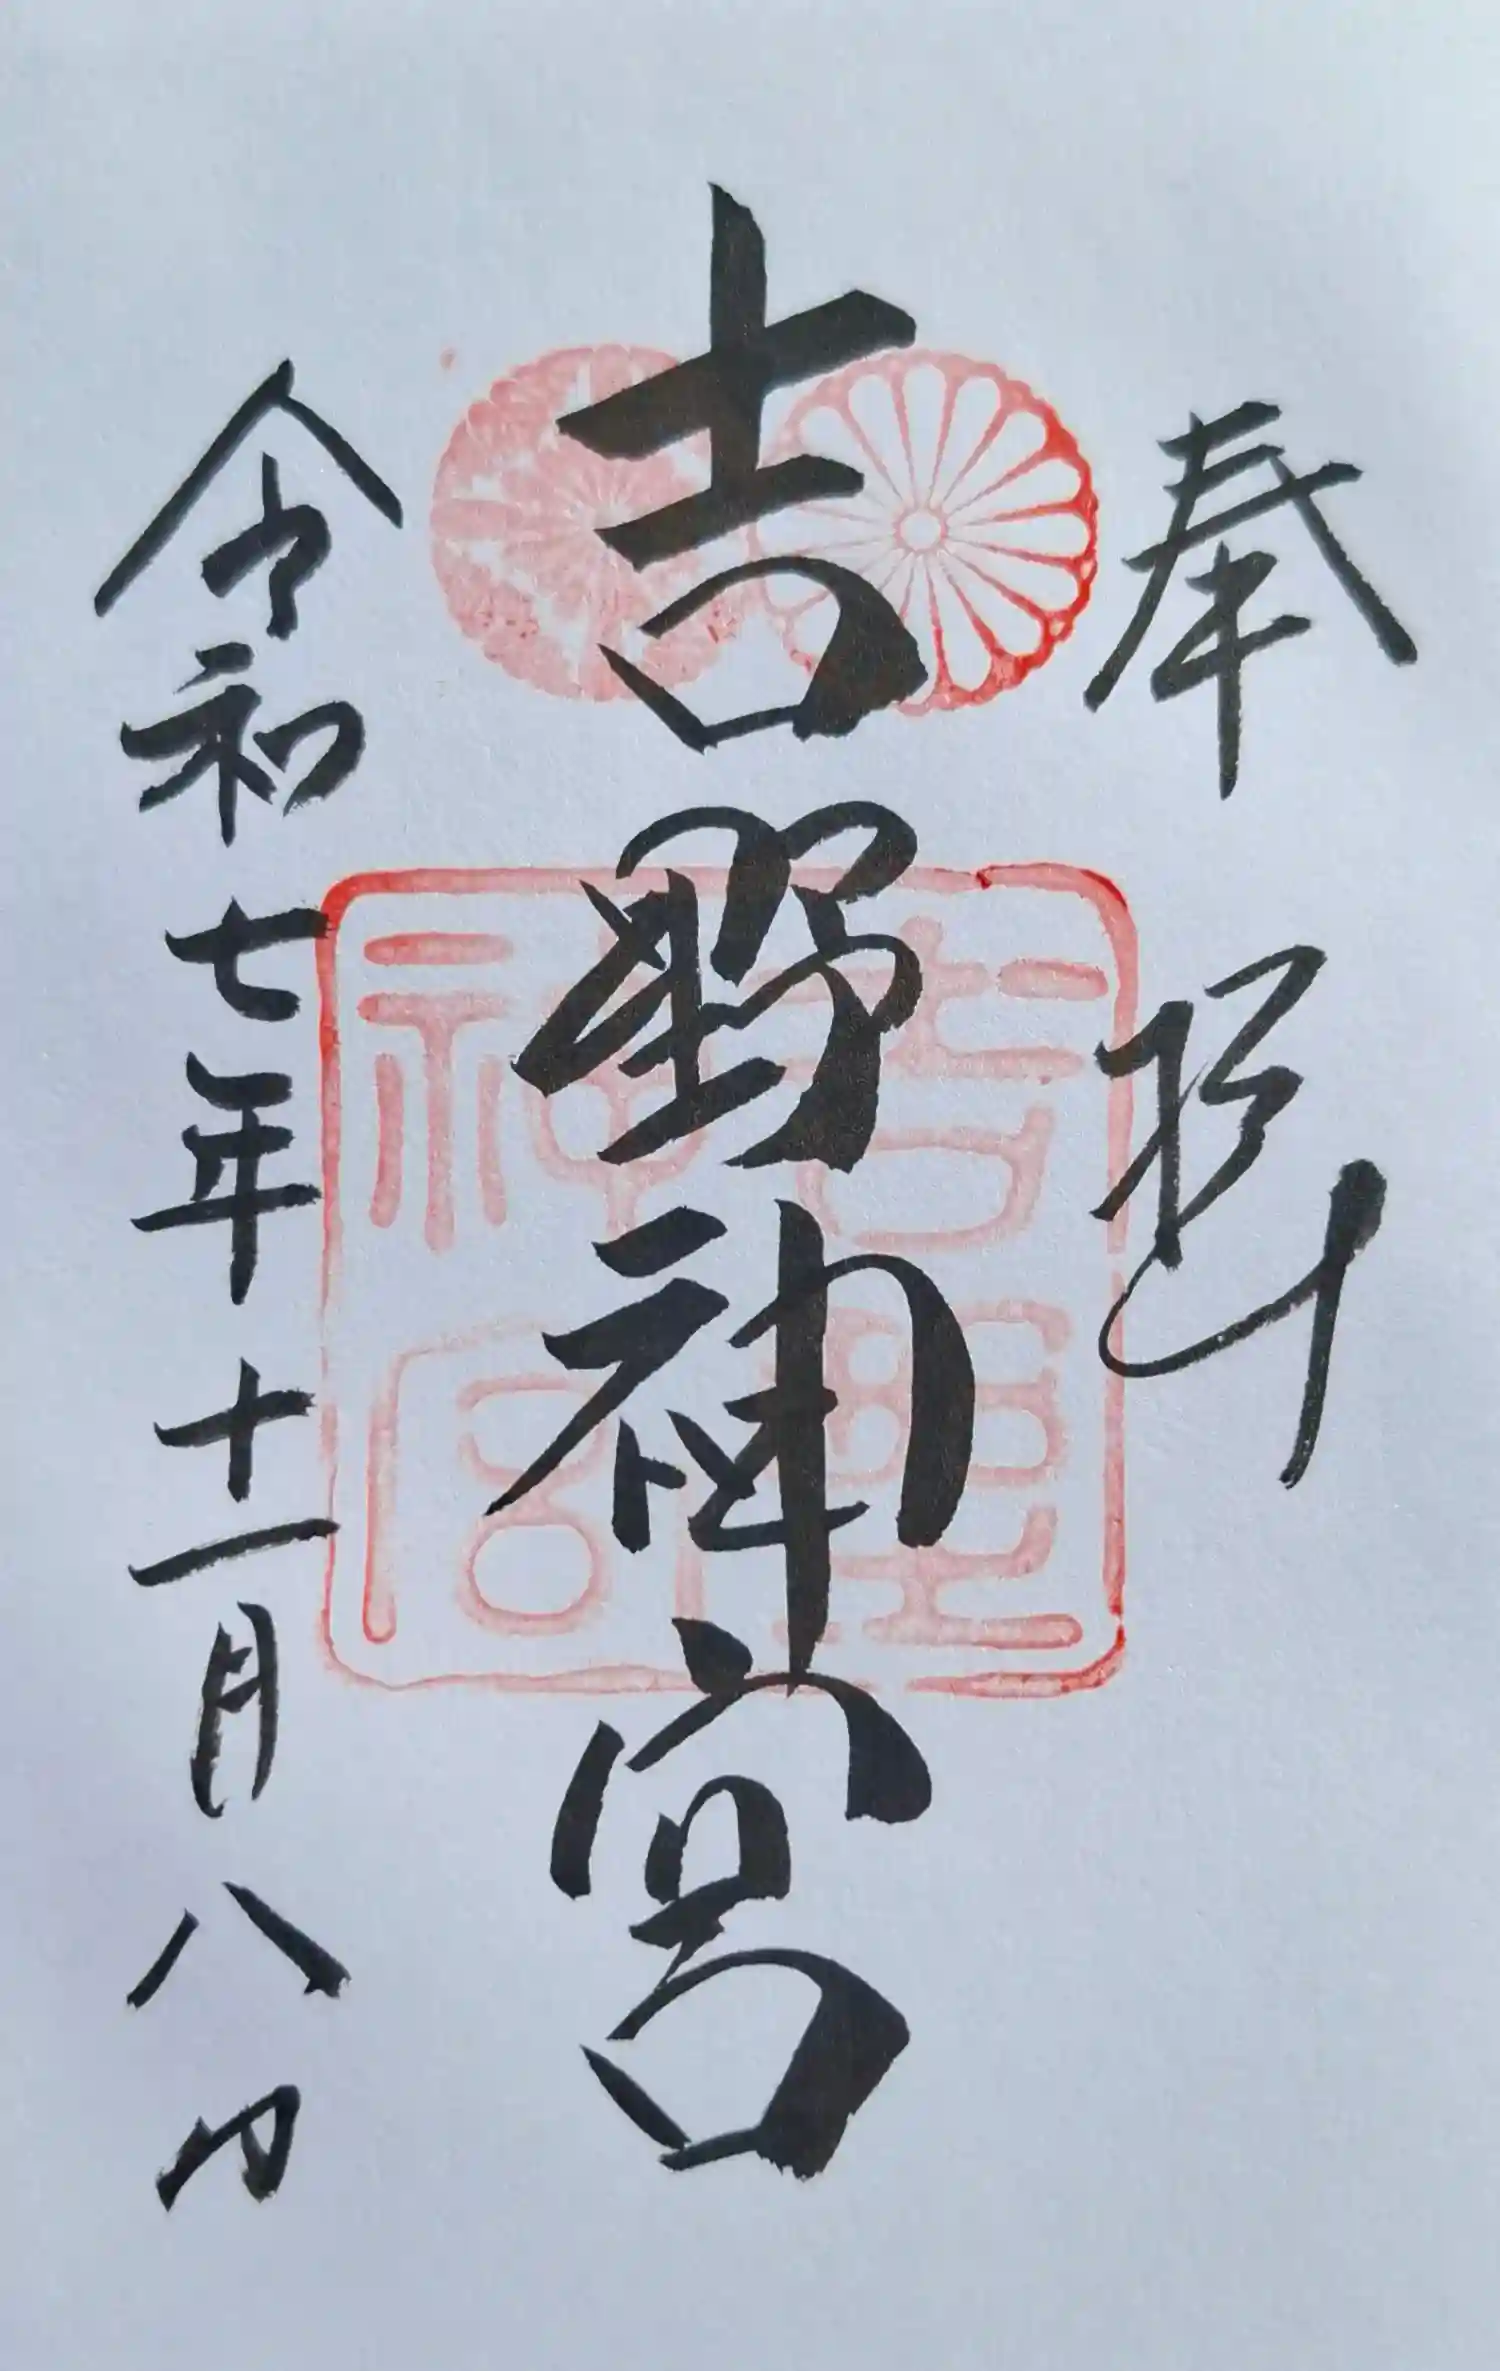 奉拝
吉野神宮
令和七年十一月八日
吉野神宮